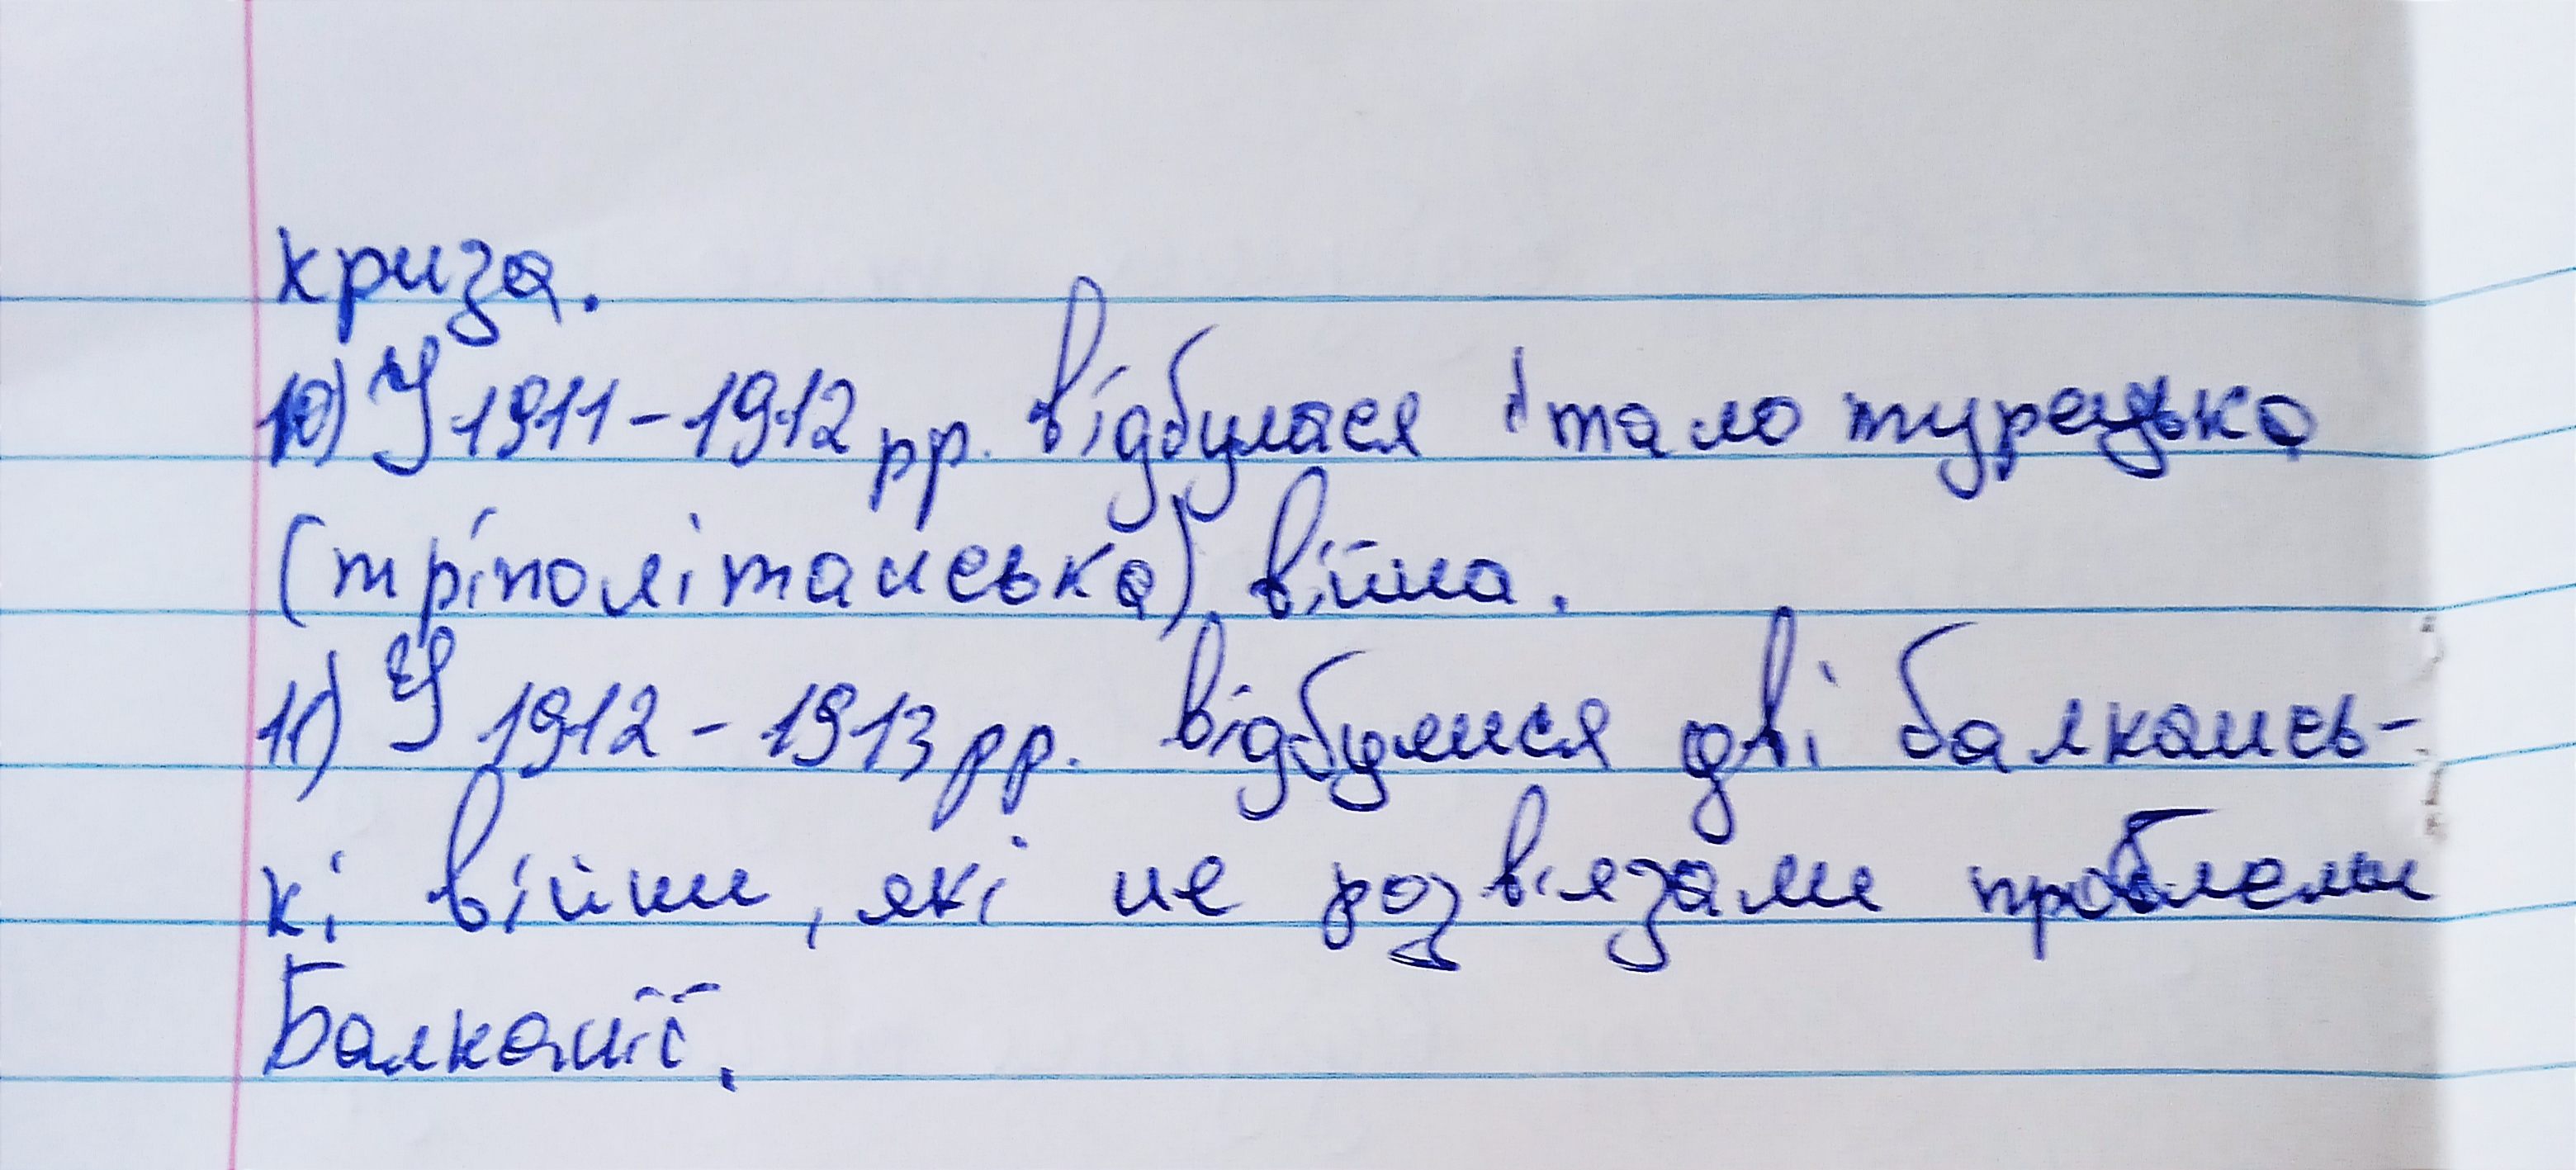 криза.
10) У 1911-1912 рр. відбулася італо турецька
(тріполітанська) війна.
11) У 1912-1913 рр. відбулися дві балкансь-
кі війни, які не розв'язали проблеми
Балканії.